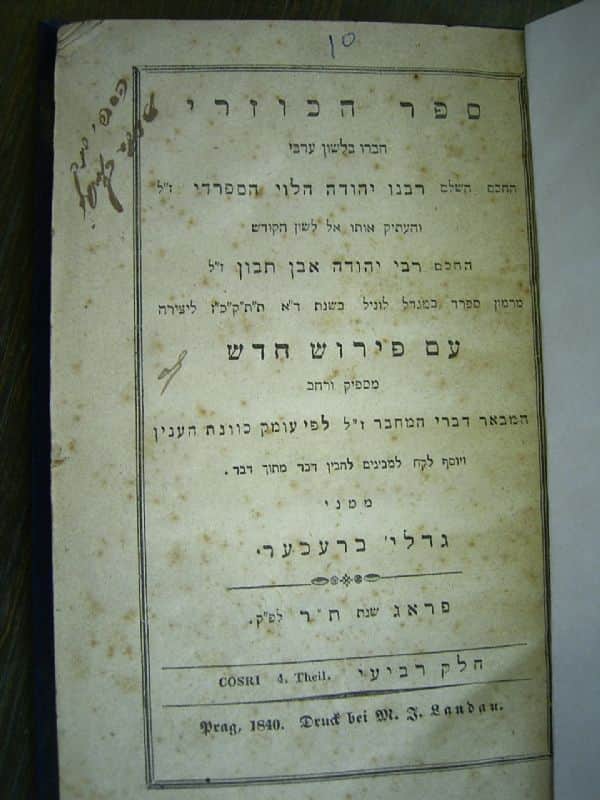 ספר הכוזרי
חברו בלשון ערבי
החכם השלם רבנו יהודה הלוי הספרדי ז״ל
והעתיק אותו אל לשון הקודש
החכם רבי יהודה אבן תבון ז״ל
מרמון ספרד במגדל לוניל בשנת ד״א ת״ת״ק״כ״ז ליצירה
עם פירוש חדש
מספיק ורחב
המבאר דברי המחבר ז״ל לפי עומק כוונת הענין
ויוסף לקח למבינים להבין דבר מתוך דבר.
ממני
גדלי׳ ברעכער.
פראג שנת ת״ר לפ״ק.
חלק רביעי
COSRI 4. Theil.
Prag, 1840. Druck bei M. J. Landau.